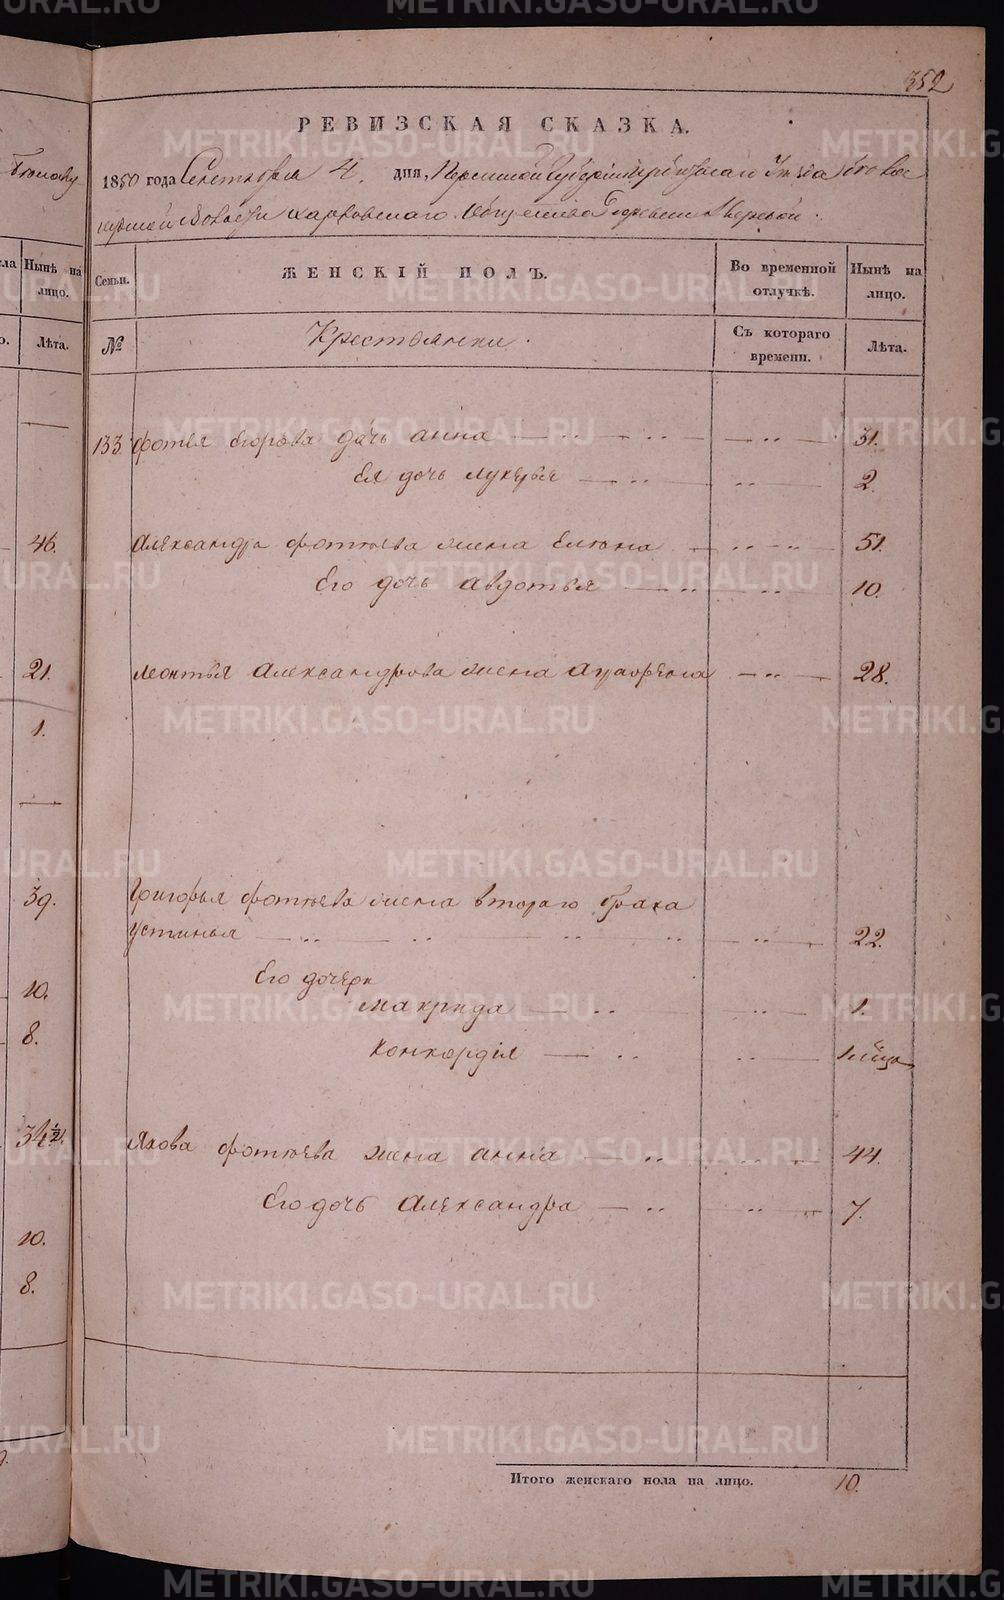 352
РЕВИЗСКАЯ СКАЗКА.
1850 года Сентября 4. дня, Пермской Губернии Ирбитскаго Уезда
Харловскаго Общества Деревни
Семьи. ЖЕНСКІЙ ПОЛЪ. Во временной отлучкѣ. Нынѣ на лицо.
№ Крестьянки. Съ котораго времени. Лѣта.
133. Фотея Егорова дочь Анна 31.
Ея дочь Лукерья 2.
Александра Фотеева жена Елена 51.
Его дочь Авдотья 10.
Леонтья Александрова жена 28.
Григорья Фотеева жена втораго брака
Устинья 22.
Его дочери
Макрида 1.
Конкордія
Якова Фотеева жена Анна 44.
Его дочь Александра 7.
Итого женскаго пола на лицо. 10.
Нынѣ на лицо.
Лѣта.
46.
21.
1.
39.
10.
8.
34½.
10.
8.
METRIKI.GASO-URAL.RU